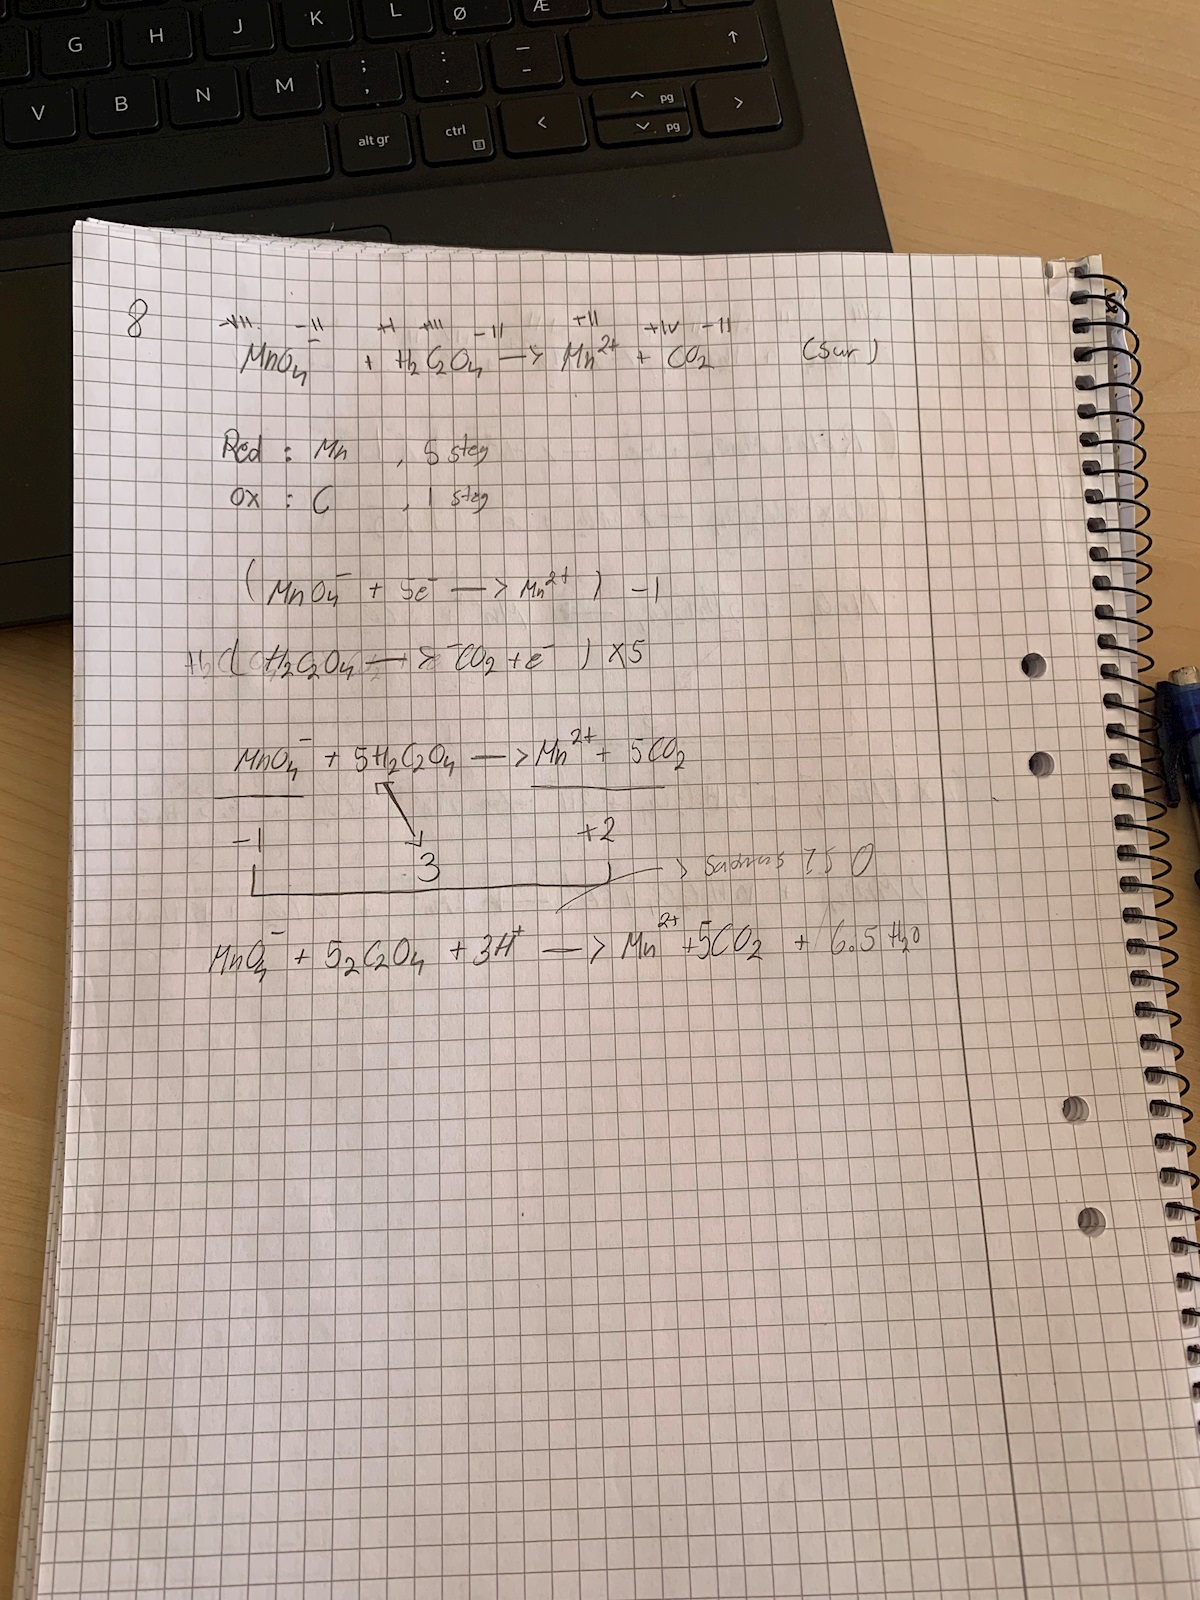 G H J K L Ø Æ
V B N M ; , : . - _ ↑
alt gr ctrl < ^ pg ⌄ pg >
8
+VII -II +I +III -II +II +IV -II
MnO₄⁻ + H₂C₂O₄ —> Mn²⁺ + CO₂ (Sur)
Red : Mn , 5 steg
Ox : C , 1 steg
(MnO₄⁻ + 5e⁻ —> Mn²⁺) -1
( H₂C₂O₄ —> CO₂ + e⁻ ) x5
MnO₄⁻ + 5H₂C₂O₄ —> Mn²⁺ + 5CO₂
-1 3 +2
MnO₄⁻ + 5₂C₂O₄ + 3H⁺ —> Mn²⁺ + 5CO₂ + 6.5 H₂O